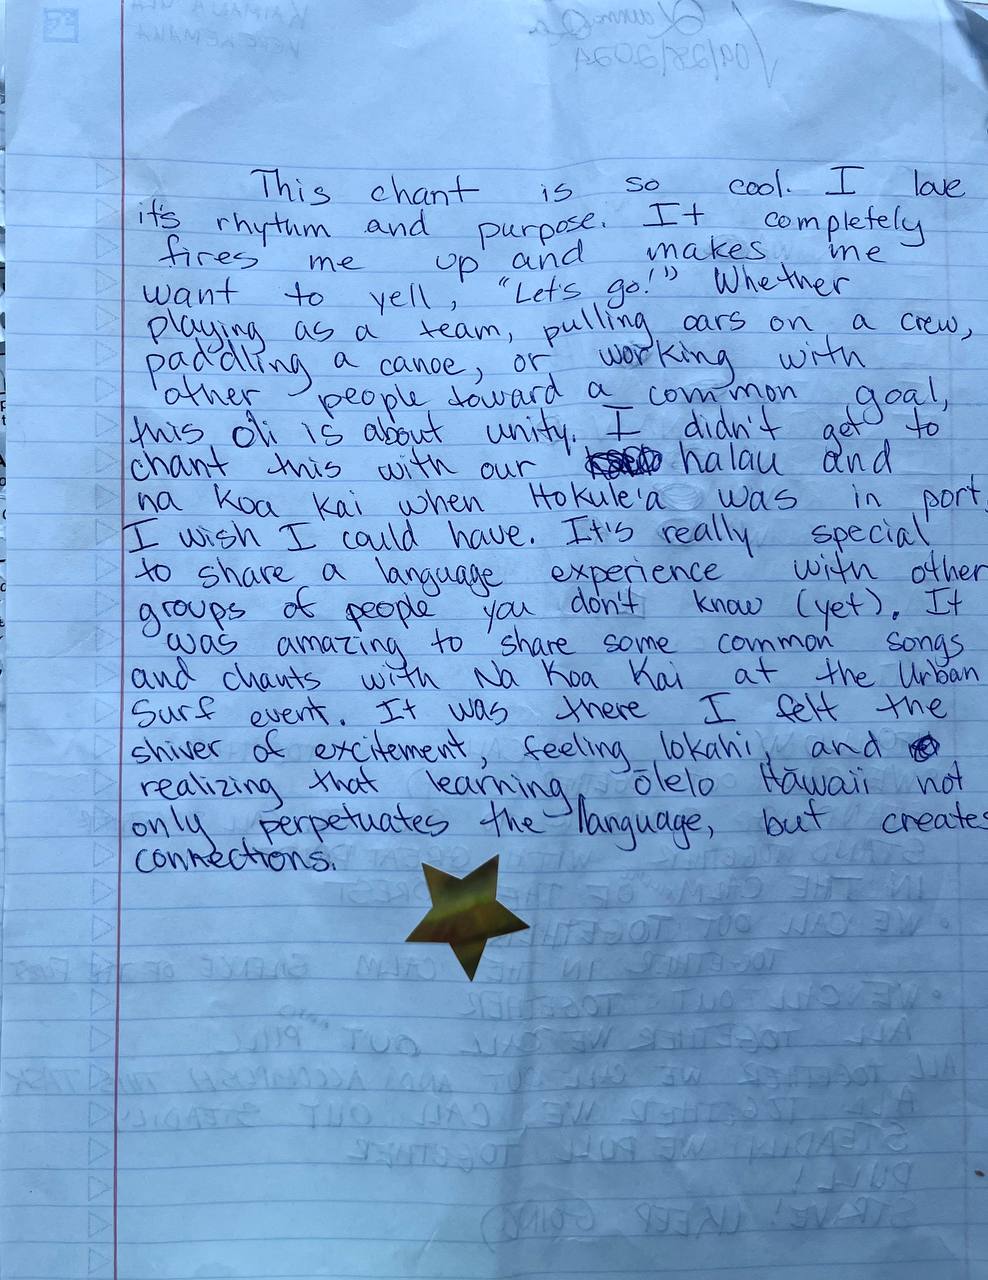 This chant is so cool. I love
it's rhythm and purpose. It completely
fires me up and makes me
want to yell, "Let's go!" Whether
playing as a team, pulling oars on a crew,
paddling a canoe, or working with
other people toward a common goal,
this oli is about unity. I didn't get to
chant this with our halau and
na Koa Kai when Hokule'a was in port.
I wish I could have. It's really special
to share a language experience with other
groups of people you don't know (yet). It
was amazing to share some common songs
and chants with Na Koa Kai at the Urban
Surf event. It was there I felt the
shiver of excitement, feeling lokahi, and
realizing that learning ōlelo Hāwaii not
only perpetuates the language, but creates
connections.